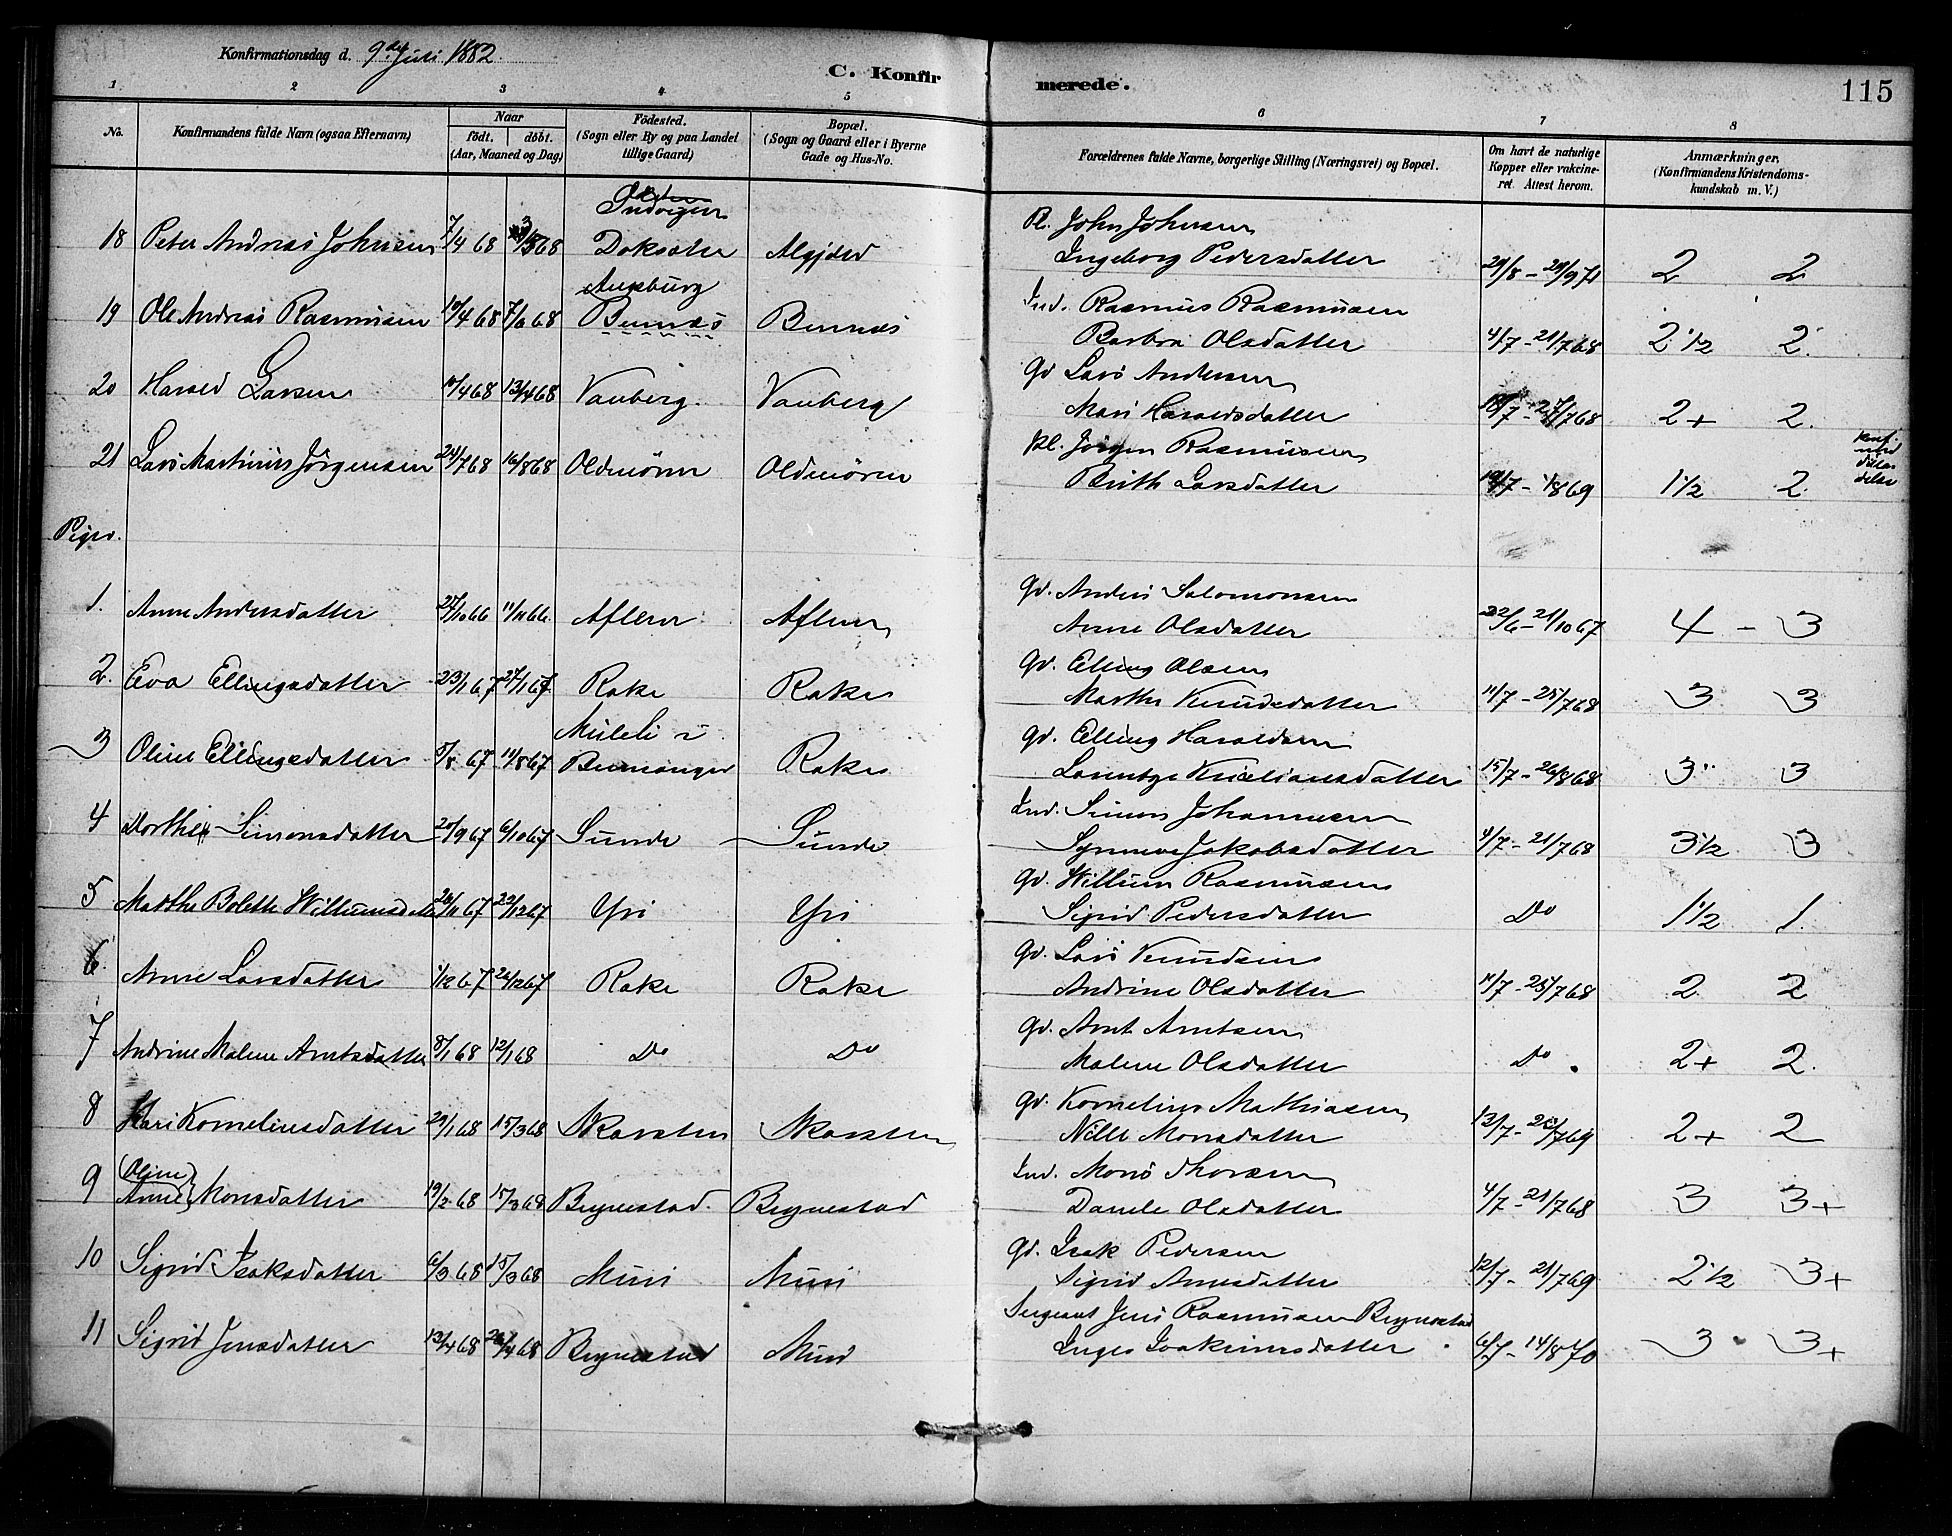 Konfirmationsdag d. 9de Juli 1882.
C. Konfirmerede.
115
1 2 3 4 5 6 7 8
No. Konfirmandens fulde Navn (ogsaa Efternavn) Naar født. døbt. (Aar, Maaned og Dag) Fødested. (Sogn eller By og paa Landet tillige Gaard) Bopæl. (Sogn og Gaard eller i Byerne Gade og Hus-No. Forældrenes fulde Navne, borgerlige Stilling (Næringsvei) og Bopæl. Om havt de naturlige Kopper eller vakcineret. Attest herom. Anmærkninger. (Konfirmandens Kristendomskundskab m. V.)
18 Peter Andreas Johnsen 7/4 68 3/5 68 Indvigen Doksæter Pl. John Johnsen
Ingeborg Pedersdatter 29/8 - 29/9 71 2 2
19 Ole Andreas Rasmussen 10/4 68 7/6 68 Bennæs Bennæs Ind. Rasmus Rasmussen
Barbra Olsdatter 4/7 - 21/7 68 2 1/2 2
20 Harald Larsen 10/4 68 13/4 68 Vanberg Vanberg Gd Lars Andersen
Mari Haraldsdatter 2+ 2.
21 Lars Martinus Jørgensen 24/7 68 16/8 68 Oldenøren Oldenøren Pl. Jørgen Rasmussen
Brith Larsdatter 19/7 - 1/8 69 1 1/2 2
Piger.
1. Anne Andersdatter 27/10 66 11/11 66 Aflem Aflem Gd. Anders Salomonsen
Anne Olsdatter 22/6 - 21/10 67 4 - 3
2. Eva Ellingsdatter 23/1 67 27/1 67 Rake Rake Gd. Elling Olsen
Marthe Knudsdatter 11/7 - 25/7 68 3 3
3 Oline Ellingsdatter 5/8 67 11/8 67 Muleli i Bremanger Rake Gd. Elling Haraldsen
Lorentze Kristiansdatter 15/7 - 26/8 68 3 3
4 Dorthe Simonsdatter 20/9 67 6/10 67 Sunde Sunde Ind. Simon Johannesen
Synneve Jakobsdatter 4/7 - 21/7 68 3 1/2 3
5 Marthe Bolette Willumsdatter 24/11 67 22/12 67 Yri Yri Gd. Willum Rasmussen
Sigrid Pedersdatter Do 1 1/2 1.
6. Anne Larsdatter 1/12 67 26/12 67 Rake Rake Gd. Lars Knudsen
Andrine Olsdatter 11/7 - 25/7 68 2 2
7 Andrine Malene Arntsdatter 8/1 68 12/1 68 Do Do Gd. Arnt Arntsen
Malene Olsdatter Do 2+ 2.
8 Mari Kornelinsdatter 29/1 68 15/3 68 Skarsten Skarsten Gd. Kornelius Mathiasen
Nille Monsdatter 2+ 2
9 (Oline) Anne Monsdatter 19/2 68 15/3 68 Brynestad Brynestad Ind. Mons Thorsen
Danele Olsdatter 4/7 - 21/7 68 3 3+
10 Sigrid Isaksdatter 6/3 68 15/3 68 Muri Muri Gd. Isak Pedersen
Sigrid Arnesdatter 12/7 - 21/7 69 2 1/2 3+
11 Sigrid Jensdatter 13/4 68 26/4 68 Brynestad Muri Sergeant Jens Rasmussen Brynestad
Inger Joakimsdatter 6/7 - 14/8 70 3 3+